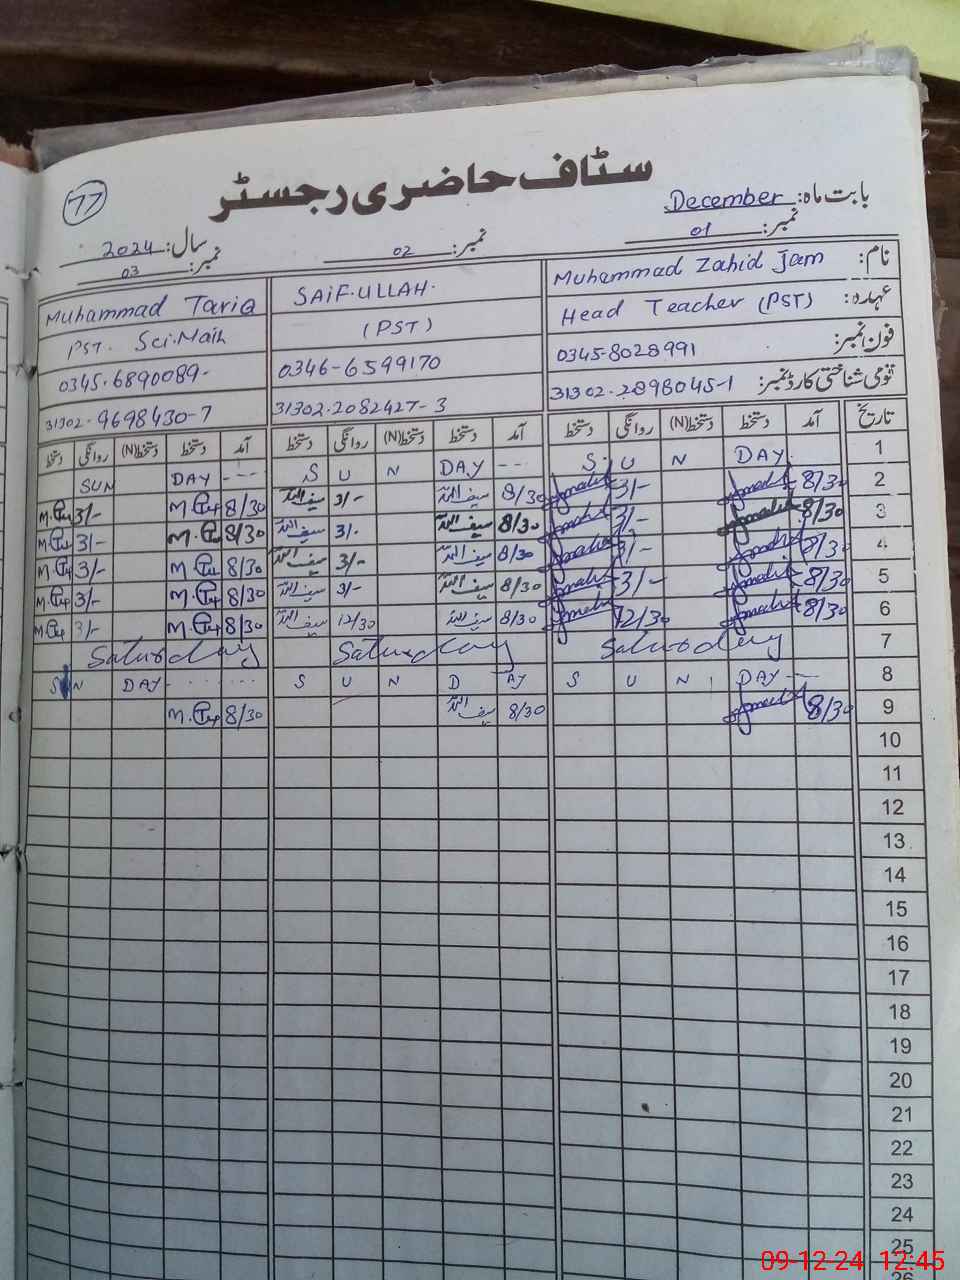 77
سٹاف حاضری رجسٹر
بابت ماہ: December
سال: 2024
نمبر: 01
نمبر: 02
نمبر: 03
نام: Muhammad Zahid Jam
SAIF-ULLAH.
Muhammad Tariq
عہدہ: Head Teacher (PST)
(PST)
PST. Sci.Math
فون نمبر: 0345-8028991
0346-6599170
0345.6890089-
قومی شناختی کارڈ نمبر: 31302-2898045-1
31302-2082427-3
31302-9698430-7
تاریخ آمد دستخط دستخط(N) روانگی دستخط آمد دستخط دستخط(N) روانگی دستخط آمد دستخط دستخط(N) روانگی دستخط
SUN DAY --- S U N DAY --- S U N DAY. 1
3/- 8/30 سیف اللہ 3/- سیف اللہ 8/30 3/- 8/30 2
3/- 8/30 سیف اللہ 3/. سیف اللہ 8/30 3/- 8/30 3
3/- 8/30 سیف اللہ 3/- سیف اللہ 8/30 3/- 8/30 4
3/- 8/30 سیف اللہ 3/- سیف اللہ 8/30 3/- 8/30 5
3/- 8/30 سیف اللہ 12/30 سیف اللہ 8/30 12/30 8/30 6
Saturday Saturday Saturday 7
SUN DAY S U N D AY S U N DAY 8
8/30 سیف اللہ 8/30 8/30 9
10
11
12
13
14
15
16
17
18
19
20
21
22
23
24
25
26
09-12-24 12:45